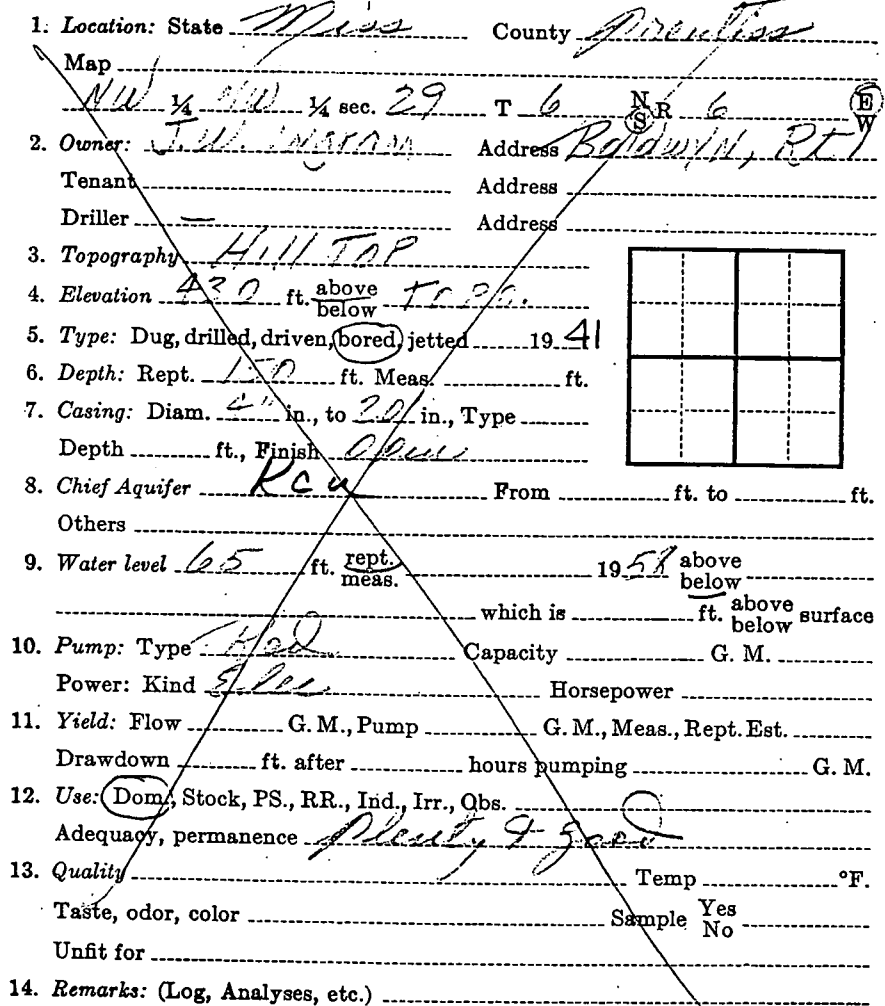 1. Location: State Miss County Prentiss
Map
NW 1/4 NW 1/4 sec. 29 T 6 N S R 6 E W
2. Owner: J.W. Ingram Address Baldwyn, Rt 1
Tenant Address
Driller — Address
3. Topography Hill Top
4. Elevation 430 ft. above below Topo.
5. Type: Dug, drilled, driven, bored, jetted 1941
6. Depth: Rept. 150 ft. Meas. ft.
7. Casing: Diam. in., to 20 in., Type
Depth ft., Finish Open
8. Chief Aquifer Kcu From ft. to ft.
Others
9. Water level 65 ft. rept. meas. 1958 above below
which is ft. above below surface
10. Pump: Type Rod Capacity G. M.
Power: Kind Elec Horsepower
11. Yield: Flow G. M., Pump G. M., Meas., Rept. Est.
Drawdown ft. after hours pumping G. M.
12. Use: Dom., Stock, PS., RR., Ind., Irr., Obs.
Adequacy, permanence Plenty & good
13. Quality Temp °F.
Taste, odor, color Sample Yes No
Unfit for
14. Remarks: (Log, Analyses, etc.)